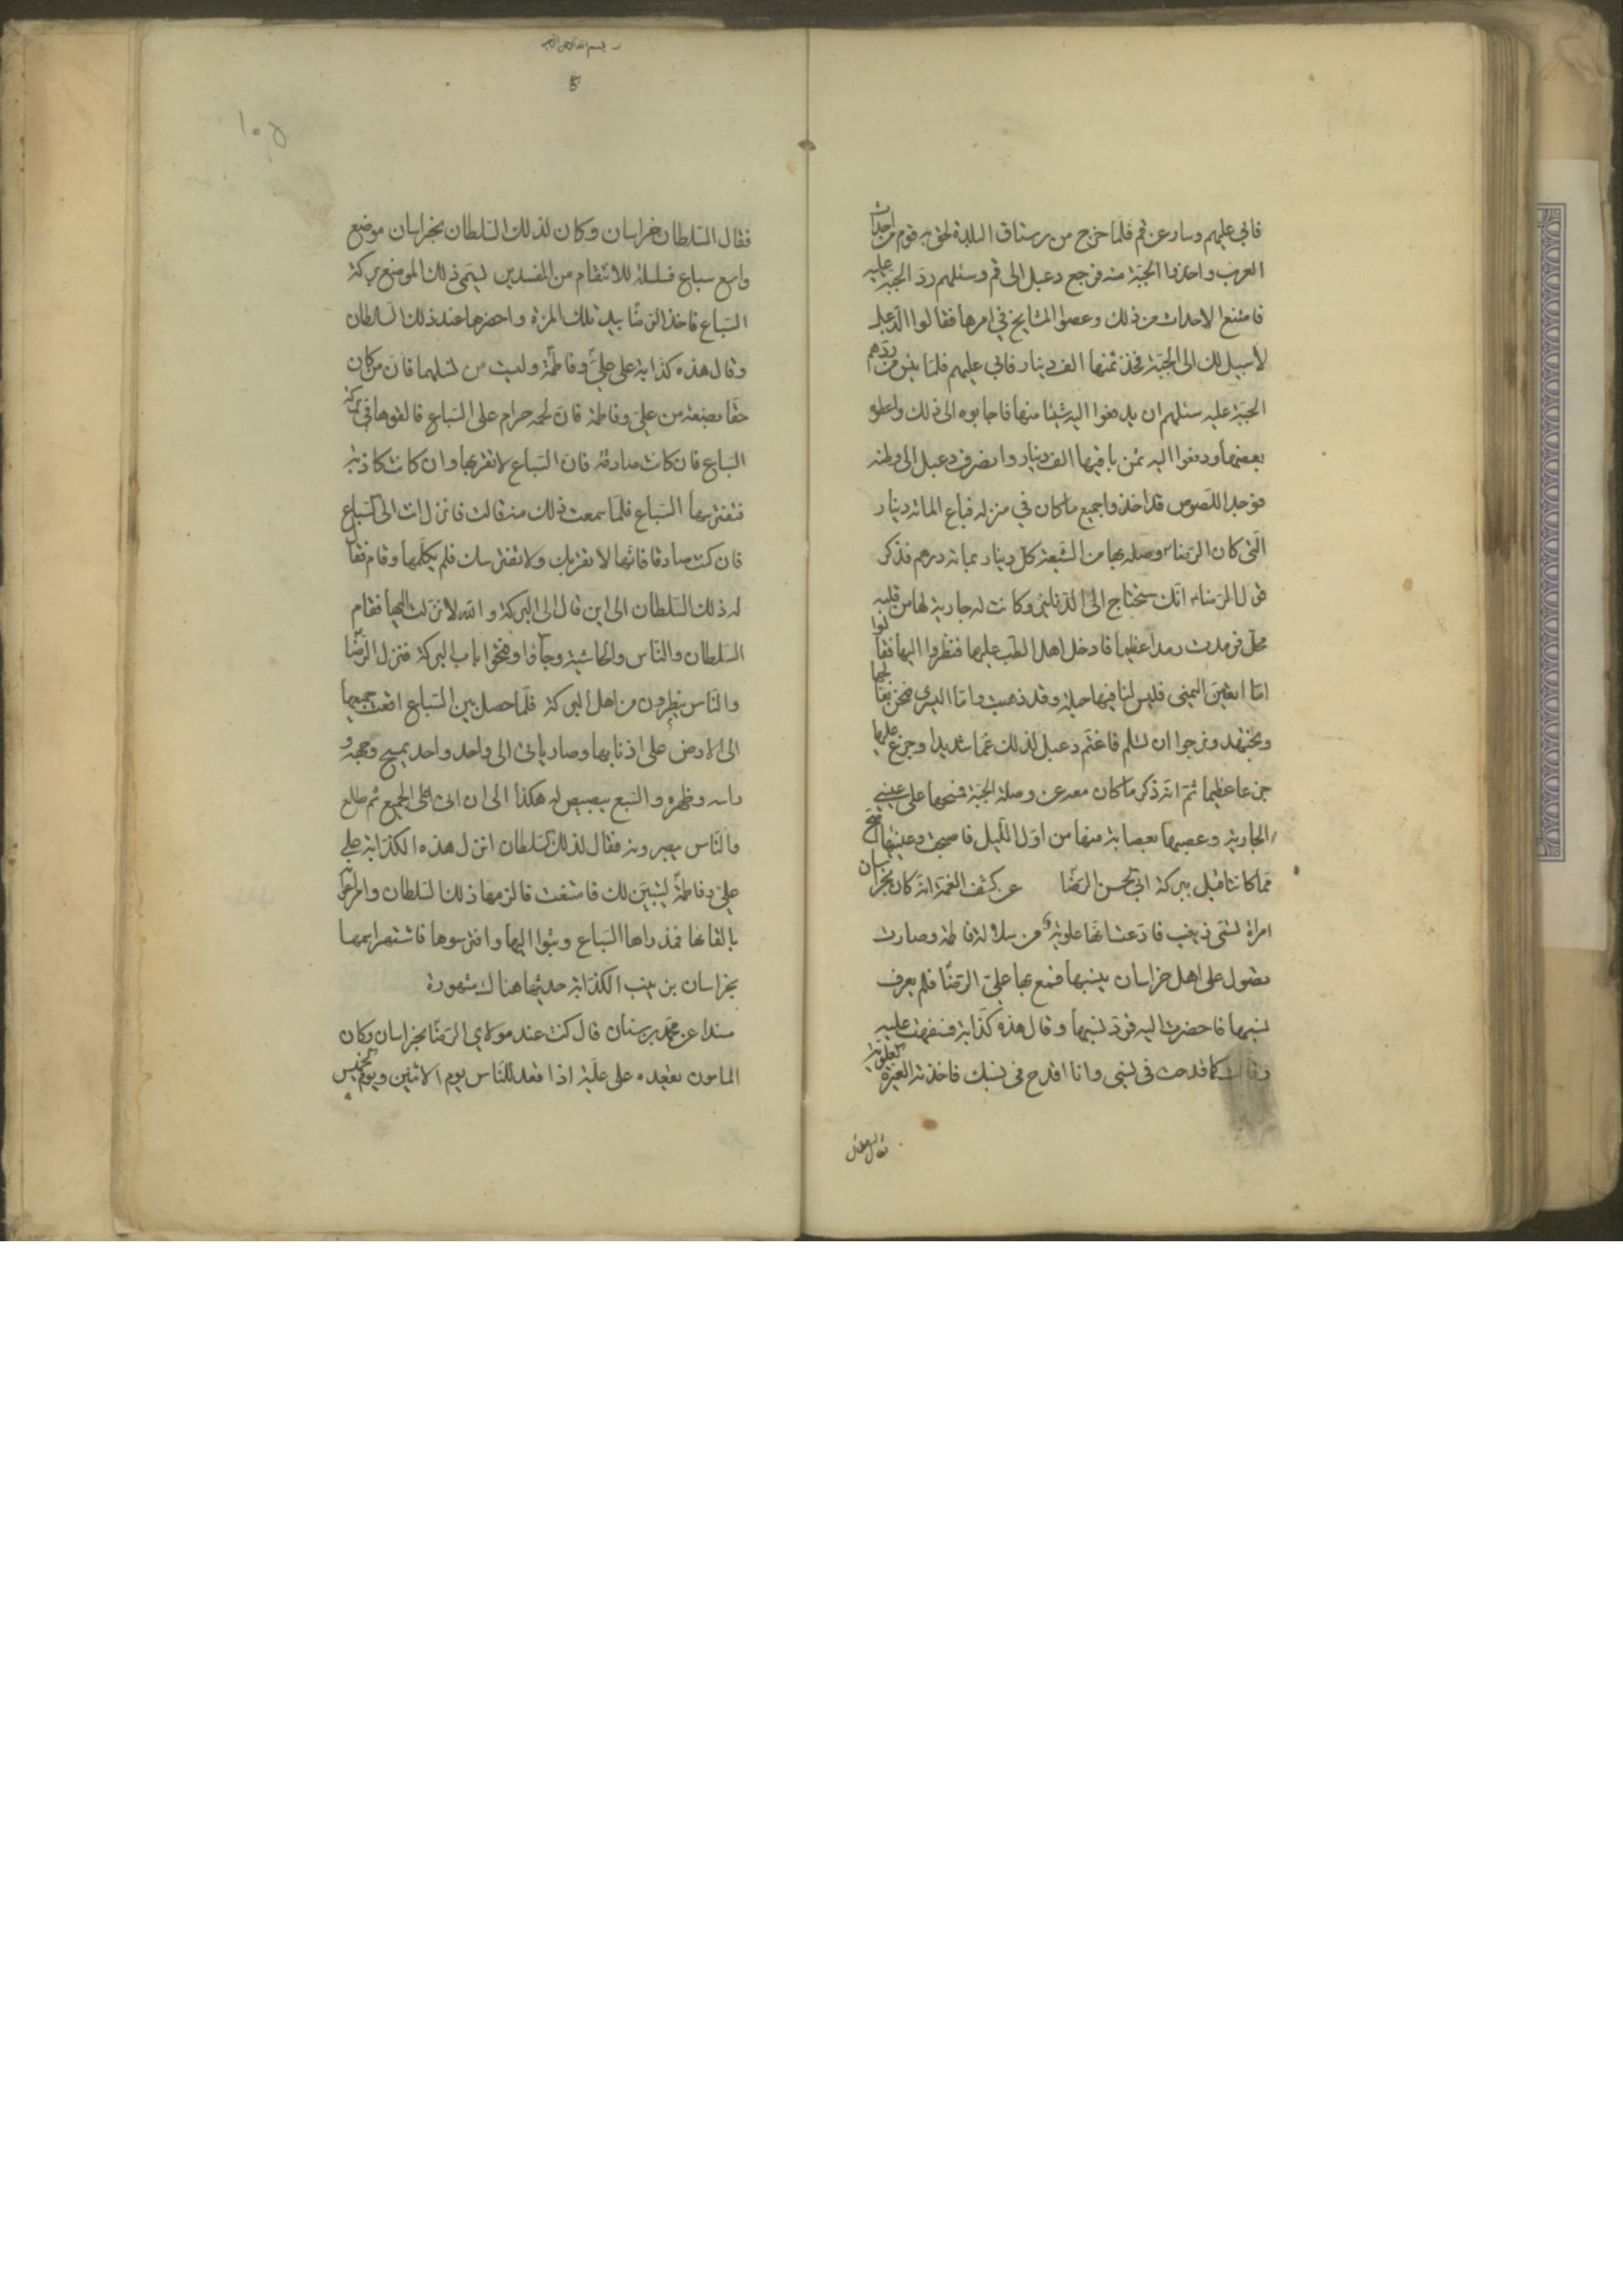 فابى عليهم وسار عن قم فلما خرج من رستاق البلدة لحق به قوم من احداث
العرب واخذوا الجبة منه فرجع دعبل الى قم وسئلهم رد الجبة عليه
فامتنع الاحداث من ذلك وعصوا المشايخ في امرها فقالوا لدعبل
لا سبيل لك الى الجبة فخذ ثمنها الف دينار فابى عليهم فلما يئس من ردهم
الجبة عليه سئلهم ان يدفعوا اليه شيئا منها فاجابوه الى ذلك واعطوه
بعضها ودفعوا اليه ثمن باقيها الف دينار وانصرف دعبل الى وطنه
فوجد اللصوص قد اخذوا جميع ما كان في منزله فباع المائة دينار
التي كان الرضا وصله بها من الشيعة كل دينار بمائة درهم فذكر
قول الرضا انك ستحتاج الى الدنانير وكانت له جارية لها من قلبه
محل فرمدت رمدا عظيما فادخل اهل الطب عليها فنظروا اليها فقالوا
اما العين اليمنى فليس لنا فيها حيلة وقد ذهبت واما اليسرى فنحن نعالجها
ونجتهد ونرجوا ان تسلم فاغتم دعبل لذلك غما شديدا وجزع عليها
جزعا عظيما ثم انه ذكر ما كان معه من وصلة الجبة فمسحها على عيني
الجارية وعصبها بعصابة منها من اول الليل فاصبحت وعينيها اصح
مما كانتا قبل ببركة ابي الحسن الرضا عن كشف الغمة انه كان بخراسان
امراة تسمى زينب فادعت انها علوية من سلالة فاطمة وصارت
تصول على اهل خراسان بنسبها فسمع بها علي الرضا فلم يعرف
نسبها فاحضرت اليه فرد نسبها وقال هذه كذابة فسفهت عليه
وقالت كما قدحت في نسبي وانا اقدح في نسبك فاخذته الغيرة العلوية
فقال السلطان
بسم الله الرحمن الرحيم
١٠٥
فقال السلطان خراسان وكان لذلك السلطان بخراسان موضع
واسع سباع مسلسلة للانتقام من المفسدين ليسمى ذلك الموضع بركة
السباع فاخذ الرضا بيد تلك المرئة واحضرها عند ذلك السلطان
وقال هذه كذابة على علي وفاطمة وليست من نسلهما فان من كان
حقا بضعة من علي وفاطمة فان لحمه حرام على السباع فالقوها في بركة
السباع فان كانت صادقة فان السباع لا تقربها وان كانت كاذبة
فتفترسها السباع فلما سمعت ذلك منه قالت فانزل انت الى السباع
فان كنت صادقا فانها لا تقربك ولا تفترسك فلم يكلمها وقام فقال
له ذلك السلطان الى اين قال الى البركة والله لانزلن اليها فقام
السلطان والناس والحاشية وجاؤا وفتحوا باب البركة فنزل الرضا
والناس ينظرون من اهل البركة فلما حصل بين السباع اقعت جميعها
الى الارض على اذنابها وصار ياتي الى واحد واحد يمسح وجهه و
راسه وظهره والسبع يبصبص له هكذا الى ان اتى على الجميع ثم طلع
والناس يبصرونه فقال لذلك السلطان انزل هذه الكذابة على
علي وفاطمة ليتبين لك فامتنعت فالزمها ذلك السلطان وامر اعوانه
بالقائها فمذ راها السباع وثبوا اليها وافترسوها فاشتهر اسمها
بخراسان بزينب الكذابة حديثها هناك مشهورة
مسندا عن محمد بن سنان قال كنت عند مولاي الرضا بخراسان وكان
المامون يقعده على علية اذا قعد للناس يوم الاثنين ويوم الخميس